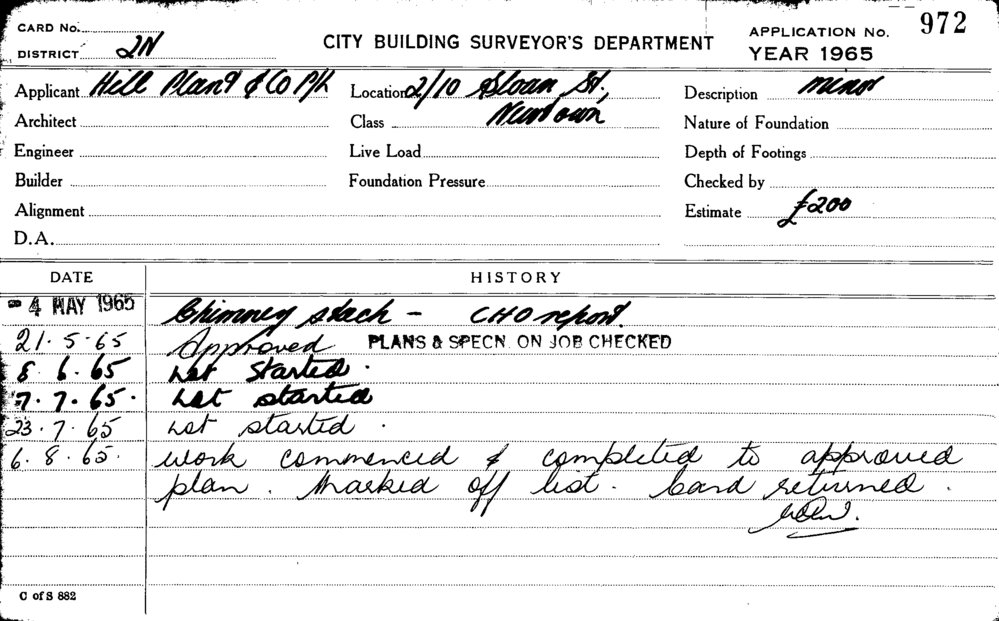 CARD No.
DISTRICT 2N
CITY BUILDING SURVEYOR'S DEPARTMENT
APPLICATION No. 972
YEAR 1965
Applicant Hill Plant & Co P/L
Location 2/10 Sloan St.,
Newtown
Description minor
Architect
Class
Nature of Foundation
Engineer
Live Load
Depth of Footings
Builder
Foundation Pressure
Checked by
Alignment
Estimate £200
D.A.
DATE
HISTORY
- 4 MAY 1965 Chimney stack - CHO report.
21.5.65 Approved PLANS & SPECN. ON JOB CHECKED
8.6.65 not started.
7.7.65. not started
23.7.65 not started.
6.8.65. work commenced & completed to approved
plan. Marked off list. Card returned.
C of S 882